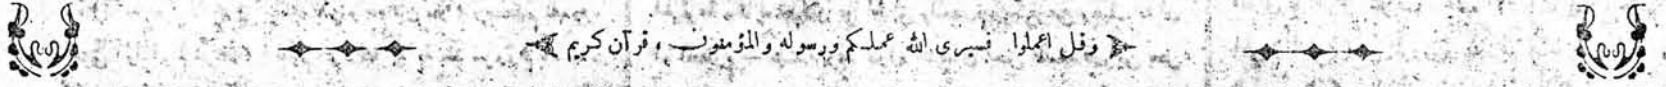 وقل اعملوا فسيرى الله عملكم ورسوله والمؤمنون ، قرآن كريم